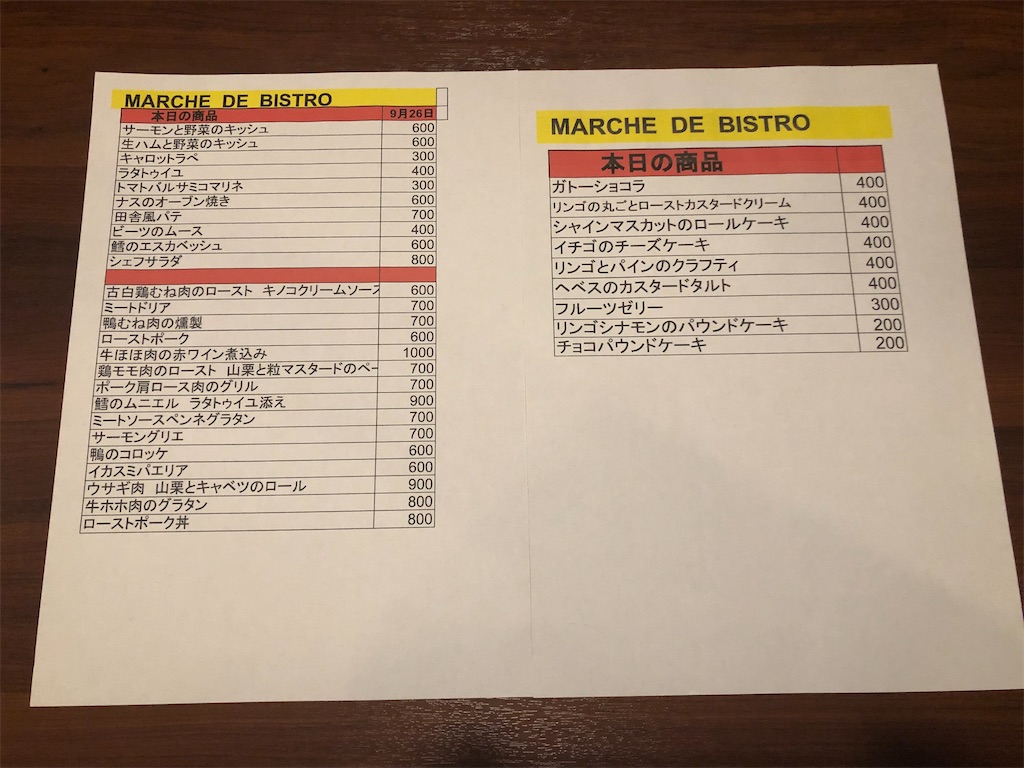 MARCHE DE BISTRO
本日の商品 9月26日
サーモンと野菜のキッシュ 600
生ハムと野菜のキッシュ 600
キャロットラペ 300
ラタトゥイユ 400
トマトバルサミコマリネ 300
ナスのオーブン焼き 600
田舎風パテ 700
ビーツのムース 400
鱈のエスカベッシュ 600
シェフサラダ 800
古白鶏むね肉のロースト キノコクリームソース 600
ミートドリア 700
鴨むね肉の燻製 700
ローストポーク 600
牛ほほ肉の赤ワイン煮込み 1000
鶏モモ肉のロースト 山栗と粒マスタードのペー 700
ポーク肩ロース肉のグリル 700
鱈のムニエル ラタトゥイユ添え 900
ミートソースペンネグラタン 700
サーモングリエ 700
鴨のコロッケ 600
イカスミパエリア 600
ウサギ肉 山栗とキャベツのロール 900
牛ホホ肉のグラタン 800
ローストポーク丼 800
MARCHE DE BISTRO
本日の商品
ガトーショコラ 400
リンゴの丸ごとローストカスタードクリーム 400
シャインマスカットのロールケーキ 400
イチゴのチーズケーキ 400
リンゴとパインのクラフティ 400
ヘベスのカスタードタルト 400
フルーツゼリー 300
リンゴシナモンのパウンドケーキ 200
チョコパウンドケーキ 200